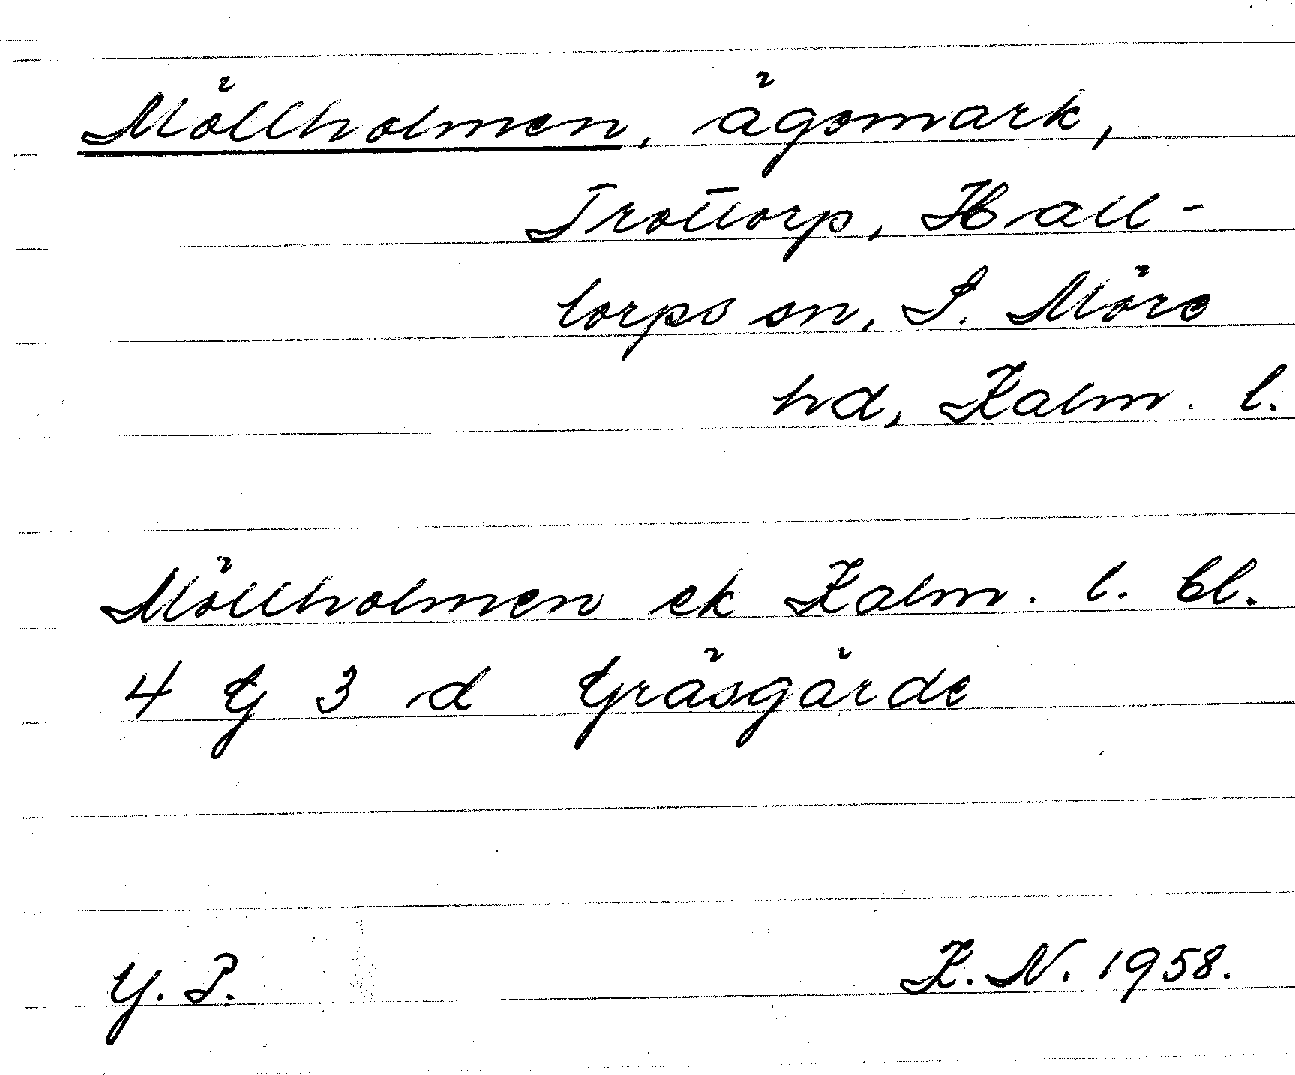 Möllholmen, ägomark,
Trottorp, Hall-
torps sn, S. Möre
hd, Kalm. l.
Möllholmen ek Kalm. l. bl.
4 G 3 d Gräsgärde
G. P.
K. N. 1958.